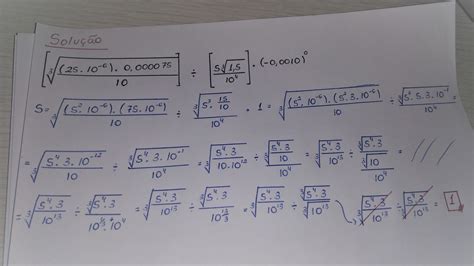 Solução
[∛((25.10⁻⁶).0,000075 / 10)] ÷ [5∛1,5 / 10⁴] . (-0,0010)⁰
S = ∛((5².10⁻⁶).(75.10⁻⁶) / 10) ÷ ∛(5³.15/10) / 10⁴ . 1 = ∛((5².10⁻⁶).(5².3.10⁻⁶) / 10) ÷ ∛(5³.5.3.10⁻¹) / 10⁴
= ∛(5⁴.3.10⁻¹² / 10) ÷ ∛(5⁴.3.10⁻¹) / 10⁴ = ∛(5⁴.3 / 10.10¹²) ÷ ∛(5⁴.3 / 10) / 10⁴ = ∛(5⁴.3 / 10¹³) ÷ ∛(5⁴.3 / 10) / 10⁴ = ///
= ∛(5⁴.3 / 10¹³) ÷ ∛(5⁴.3) / 10^(1/3).10⁴ = ∛(5⁴.3 / 10¹³) ÷ ∛(5⁴.3) / 10^(13/3) = ∛(5⁴.3 / 10¹³) ÷ ∛(5⁴.3) / ∛(10¹³) → ∛(5⁴.3 / 10¹³) ÷ ∛(5⁴.3 / 10¹³) = 1